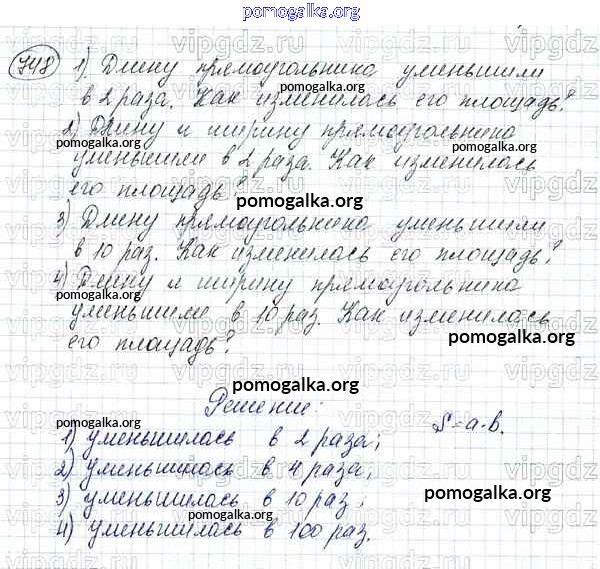 pomogalka.org
748 1) Длину прямоугольника уменьшили
в 2 раза. Как изменилась его площадь?
2) Длину и ширину прямоугольника
уменьшили в 2 раза. Как изменилась
его площадь?
3) Длину прямоугольника уменьшили
в 10 раз. Как изменилась его площадь?
4) Длину и ширину прямоугольника
уменьшили в 10 раз. Как изменилась
его площадь?
Решение:
S=a·b.
1) уменьшилась в 2 раза;
2) уменьшилась в 4 раза;
3) уменьшилась в 10 раз;
4) уменьшилась в 100 раз.